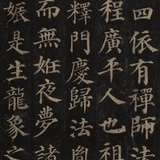 四依有禪師法
程廣平人也
釋門慶歸法胤
而無妊夜夢諸
娠是生龍象之